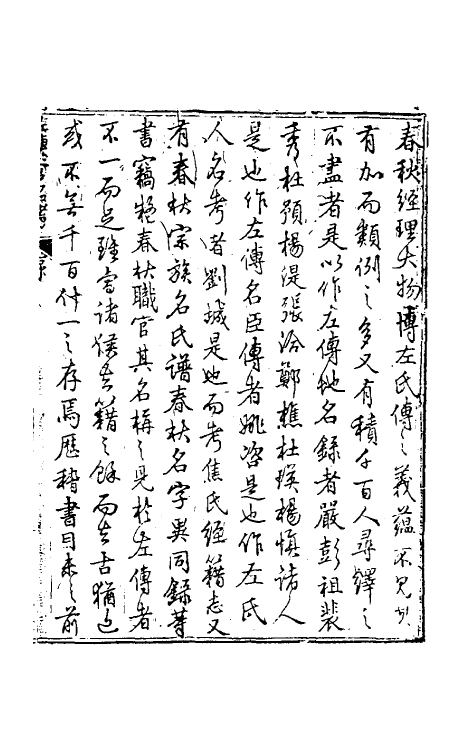 春秋經理大物博左氏傳之義蘊不見少
有加而類例之多又有積千百人尋繹之
不盡者是以作左傳地名錄者嚴彭祖裴
秀杜預楊湜張洽鄭樵杜瑛楊慎諸人
是也作左傳名臣傳者姚咨是也作左氏
人名考者劉城是也而考焦氏經籍志又
有春秋宗族名氏譜春秋名字異同錄等
書竊謂春秋職官其名稱之見於左傳者
不一而足雖當諸侯去籍之餘而去古猶近
或不無千百什一之存焉歷稽書目未之前